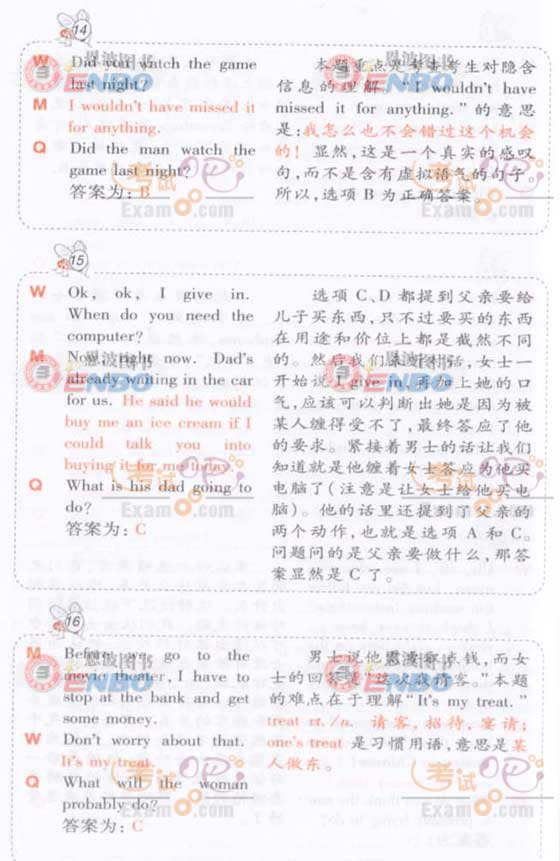 14
W Did you watch the game
last night?
M I wouldn't have missed it
for anything.
Q Did the man watch the
game last night?
答案为：B
本题重点是考查考生对隐含
信息的理解。“I wouldn't have
missed it for anything.”的意思
是：我怎么也不会错过这个机会
的！显然，这是一个真实的感叹
句，而不是含有虚拟语气的句子。
所以，选项 B 为正确答案。
15
W Ok, ok, I give in.
When do you need the
computer?
M Now, right now. Dad's
already waiting in the car
for us. He said he would
buy me an ice cream if I
could talk you into
buying it for me today.
Q What is his dad going to
do?
答案为：C
选项 C、D 都提到父亲要给
儿子买东西，只不过要买的东西
在用途和价位上都是截然不同
的。然后我们听听对话，女士一
开始说 I give in，再加上她的口
气，应该可以判断出她是因为被
某人缠得受不了，最终答应了他
的要求。紧接着男士的话让我们
知道就是他缠着女士答应为他买
电脑了（注意是让女士给他买电
脑）。他的话里还提到了父亲的
两个动作，也就是选项 A 和 C。
问题问的是父亲要做什么，那答
案显然是 C 了。
16
M Before we go to the
movie theater, I have to
stop at the bank and get
some money.
W Don't worry about that.
It's my treat.
Q What will the woman
probably do?
答案为：C
男士说他要去取点钱，而女
士的回答是“这次我请客。”本题
的难点在于理解“It's my treat.”
treat vt./n. 请客，招待，宴请；
one's treat 是习惯用语，意思是某
人做东。
恩波图书
ENBO
考试吧
Exam8.com